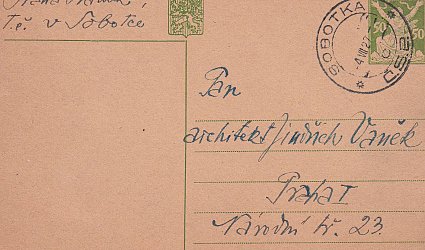 t.č. v Sobotce
SOBOTKA
50
50
Pan
architekt Jindřich Vaněk
Praha I
Národní tř. 23.